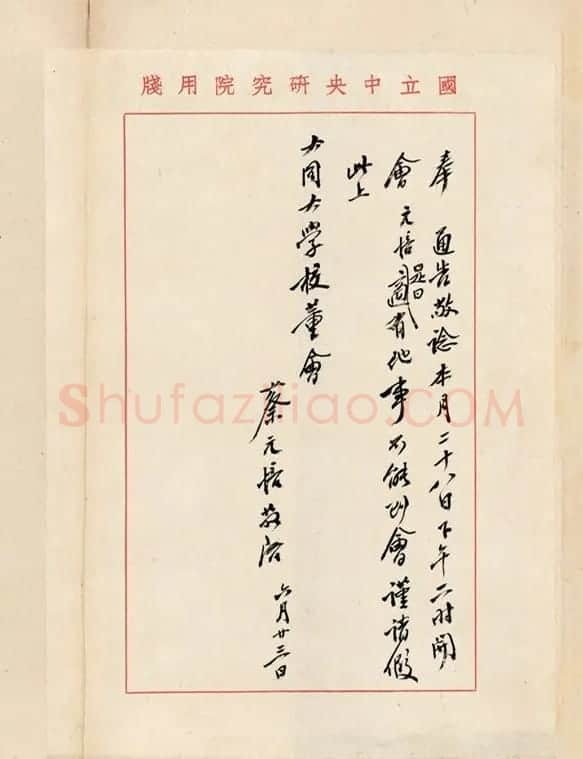 國立中央研究院用牋
奉 通告敬諗本月二十八日下午二时開
會元培是日適有他事不能到會謹請假
此上
大同大學校董會
蔡元培敬啓 六月廿三日
Shufaziliao.COM